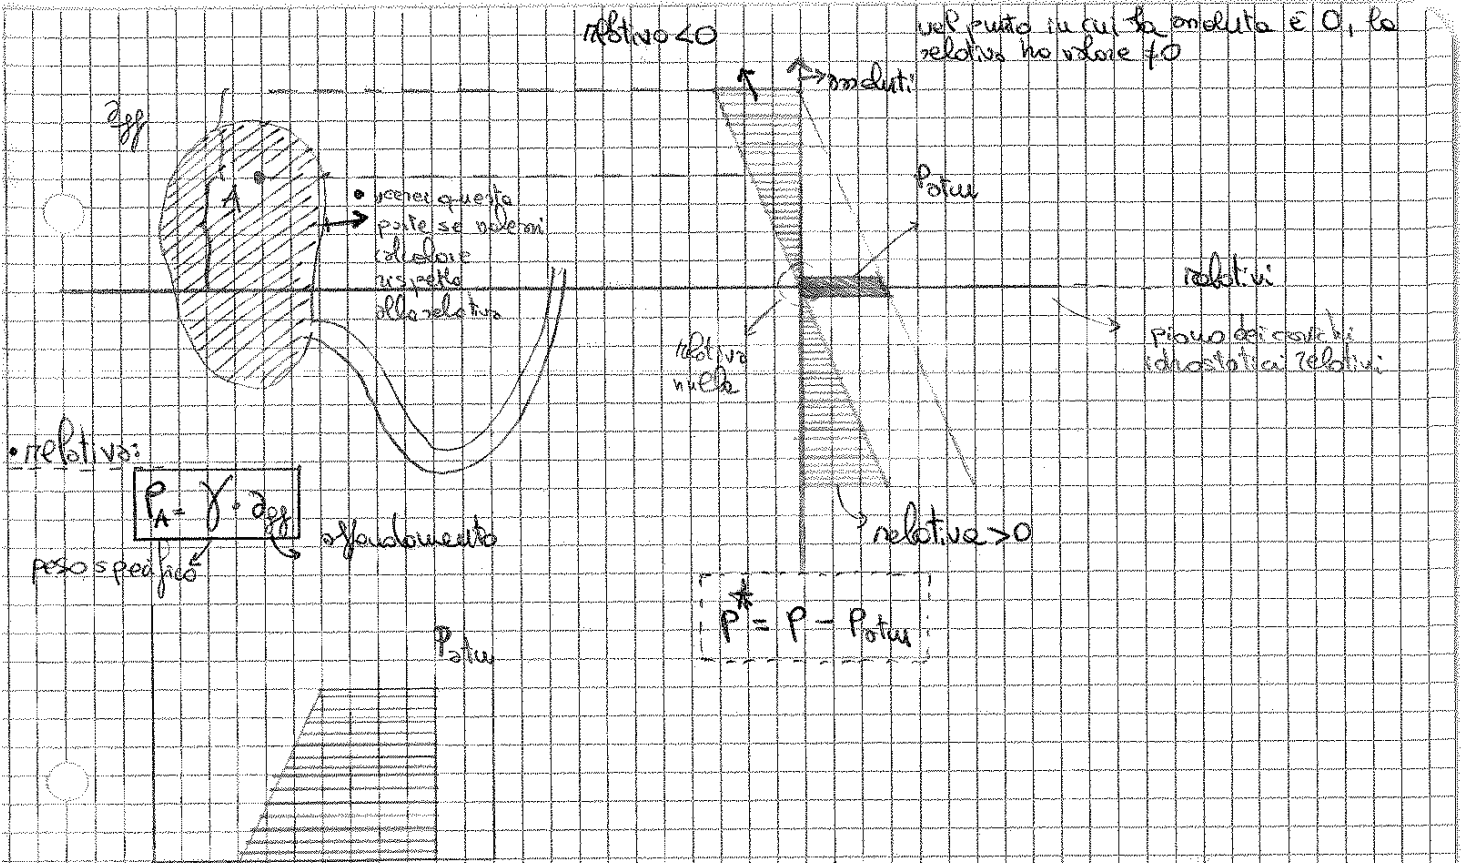 relativo<0
nel punto in cui la assoluta è 0, la
relativa ha valore ≠0
assoluti
aff
A
Patm
• verrei questa
parte se volessi
calcolare
rispetto
alla relativa
relativi
relativa
nulla
piano dei carichi
idrostatici relativi
• relativa:
PA = γ · aff
affondamento
peso specifico
relativa>0
P* = P - Patm
Patm